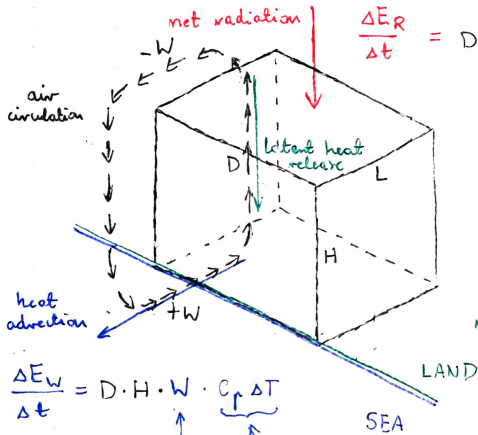 net radiation
ΔE_R / Δt = D
-W
air
circulation
latent heat
release
D
L
H
heat
advection
+W
LAND
ΔE_W / Δt = D·H·W·C_p ΔT
SEA